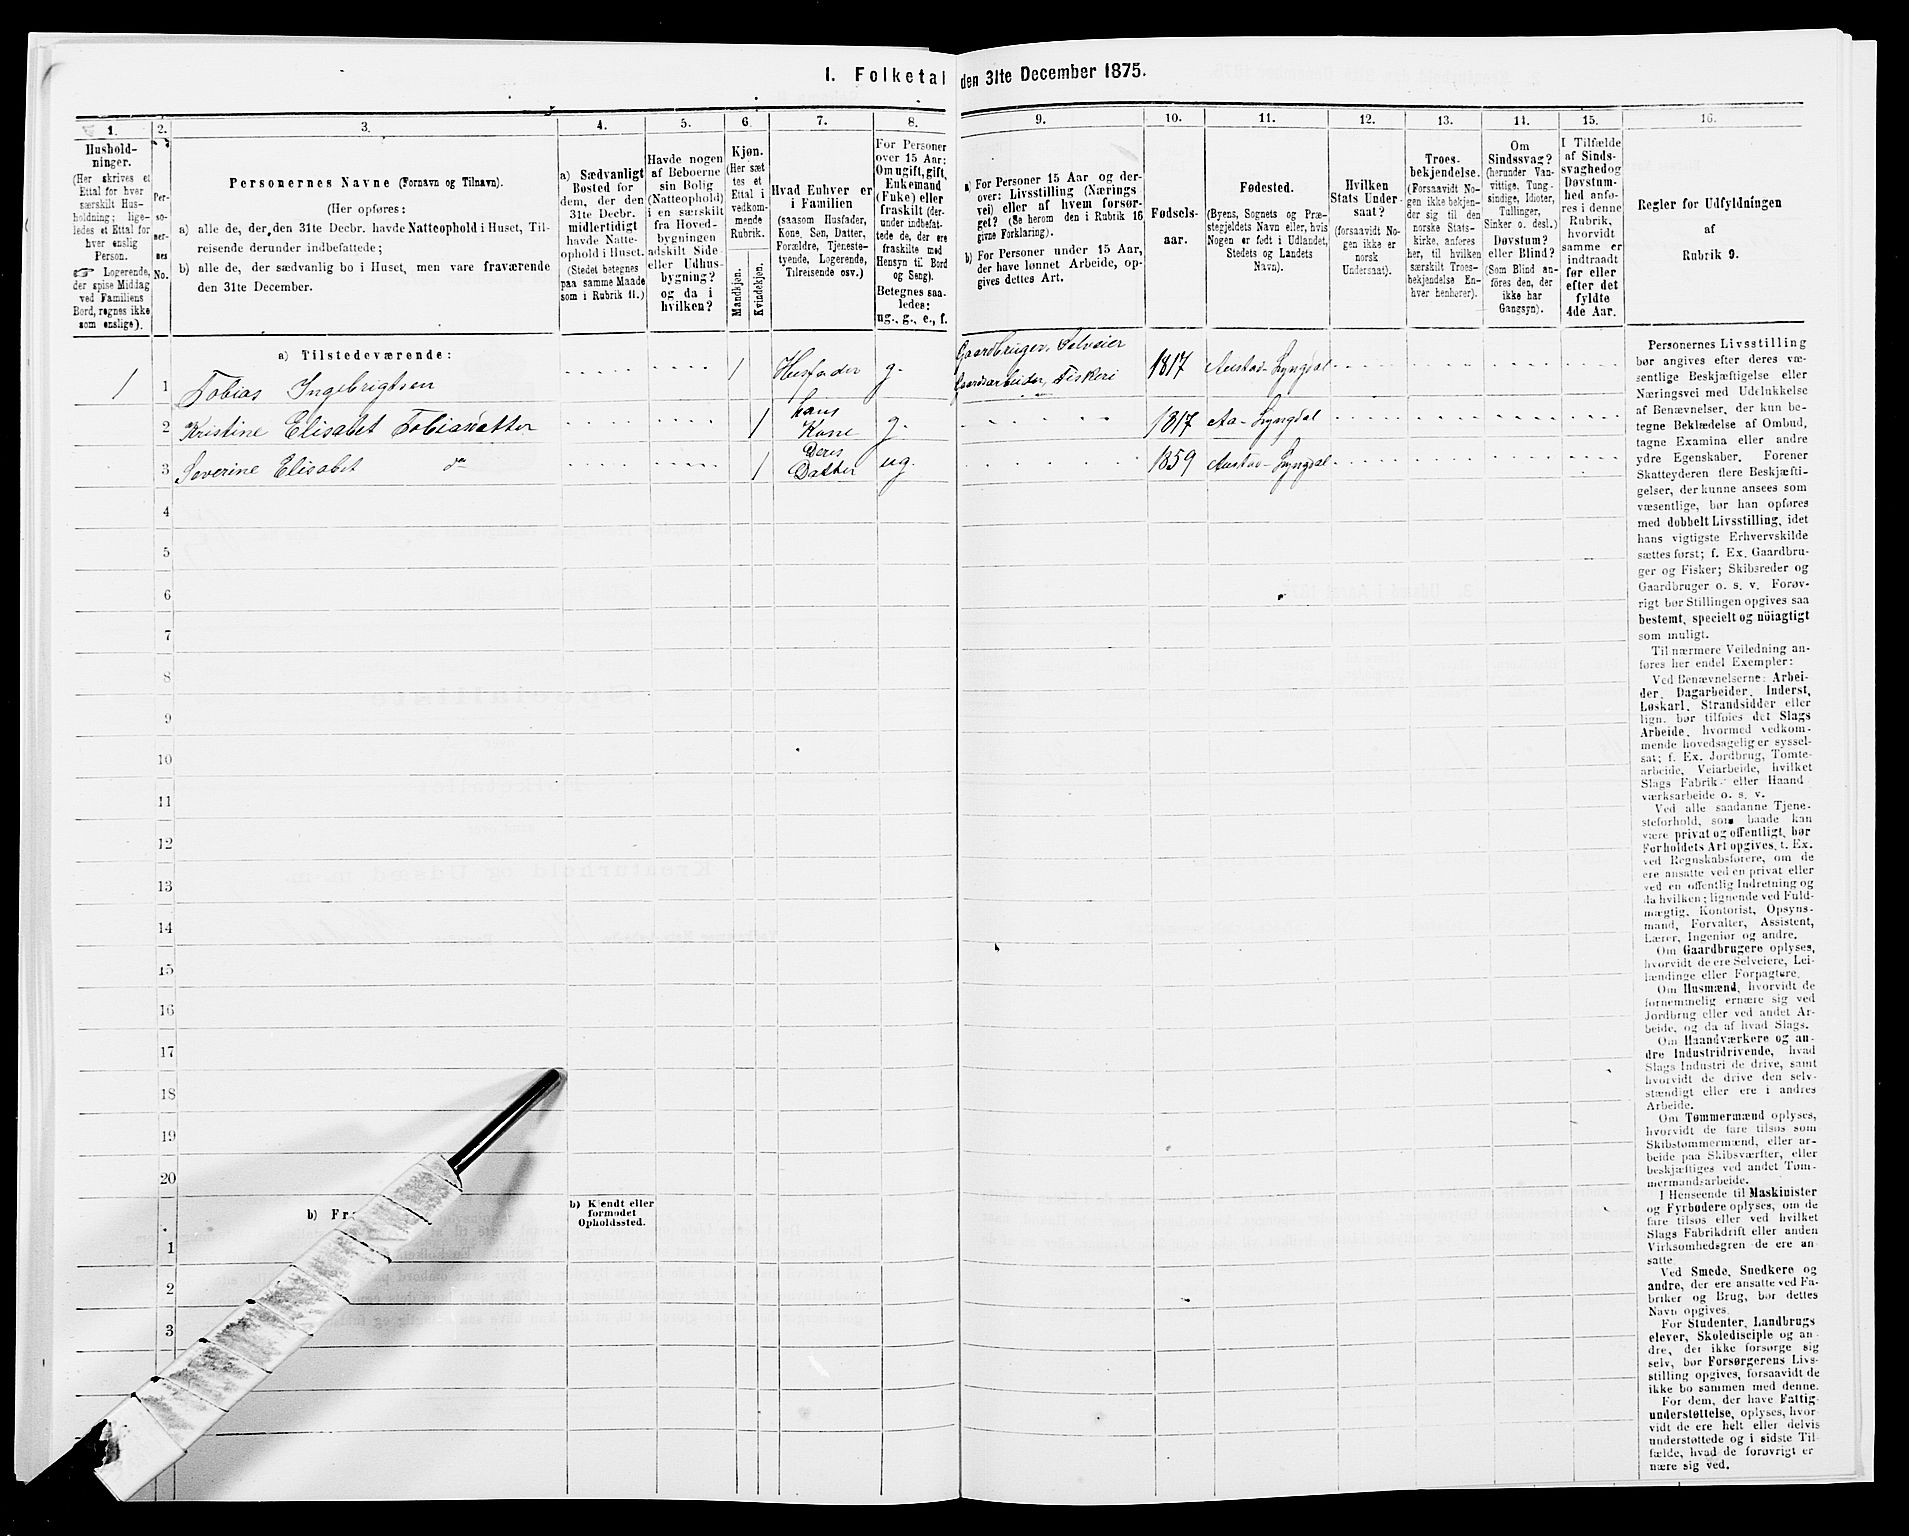 I. Folketal den 31te December 1875.
1.
2.
3.
4.
5.
6.
7.
8.
9.
10.
11.
12.
13.
14.
15.
16.
Hushold-
ninger.
(Her skrives et
Ettal for hver
særskilt Hus-
holdning; lige-
ledes et Ettal for
hver enslig
Person.
☞ Logerende,
der spise Middag
ved Familiens
Bord, regnes ikke
som enslige).
Per-
so-
ner-
nes
No.
Personernes Navne (Fornavn og Tilnavn).
(Her opføres:
a) alle de, der den 31te Decbr. havde Natteophold i Huset, Til-
reisende derunder indbefattede;
b) alle de, der sædvanlig bo i Huset, men vare fraværende
den 31te December.
a) Sædvanligt
Bosted for
dem, der den
31te Decbr.
midlertidigt
havde Natte-
ophold i Huset.
(Stedet betegnes
paa samme Maade
som i Rubrik 11.)
Havde nogen
af Beboerne
sin Bolig
(Natteophold)
i en særskilt
fra Hoved-
bygningen
adskilt Side-
eller Udhus-
bygning?
og da i
hvilken?
Kjøn.
(Her sæt
tes et
Ettal i
vedkom-
mende
Rubrik.
Mandkjøn.
Kvindekjøn.
Hvad Enhver er
i Familien
(saasom Husfader,
Kone, Søn, Datter,
Forældre, Tjeneste-
tyende, Logerende,
Tilreisende osv.)
For Personer
over 15 Aar:
Om ugift, gift,
Enkemand
(Enke) eller
fraskilt (der-
under indbefat-
tede de, der ere
fraskilte med
Hensyn til Bord
og Seng).
Betegnes saa-
ledes:
ug., g., e., f.
a) For Personer 15 Aar og der-
over: Livsstilling (Nærings
vei) eller af hvem forsør-
get? (Se herom den i Rubrik 16
givne Forklaring).
b) For Personer under 15 Aar,
der have lønnet Arbeide, op-
gives dettes Art.
Fødsels-
aar.
Fødested.
(Byens, Sognets og Præ-
stegjeldets Navn eller, hvis
Nogen er født i Udlandet,
Stedets og Landets
Navn).
Hvilken
Stats Under-
saat?
(forsaavidt No-
gen ikke er
norsk
Undersaat).
Troes-
bekjendelse.
(Forsaavidt No-
gen ikke bekjen-
der sig til den
norske Stats-
kirke, anføres
her, til hvilken
særskilt Troes-
bekjendelse En-
hver henhører).
Om
Sindssvag?
(herunder Van-
vittige, Tung-
sindige, Idioter,
Tullinger,
Sinker o. desl.)
Døvstum?
eller Blind?
(Som Blind an-
føres den, der
ikke har
Gangsyn).
I Tilfælde
af Sinds-
svaghed og
Døvstum-
hed anfø-
res i denne
Rubrik,
hvorvidt
samme er
indtraadt
før eller
efter det
fyldte
4de Aar.
Regler for Udfyldningen
af
Rubrik 9.
a) Tilstedeværende:
1 1 Tobias Ingebrigtsen 1 Husfader g. Gaardbruger, Selveier
Gaardsarbeider, Fiskeri 1817 Austad-Lyngdal
2 Kristine Elisabet Tobiasdatter 1 hans Kone g. 1817 Aa-Lyngdal
3 Severine Elisabet do 1 Deres Datter ug. 1859 Austad-Lyngdal
4
5
6
7
8
9
10
11
12
13
14
15
16
17
18
19
20
b) Fr
b) Kjendt eller
formodet
Opholdssted.
1
2
3
Personernes Livsstilling
bør angives efter deres væ-
sentlige Beskjæftigelse eller
Næringsvei med Udelukkelse
af Benævnelser, der kun be-
tegne Beklædelse af Ombud,
tagne Examina eller andre
ydre Egenskaber. Forener
Skatteyderen flere Beskjæfti-
gelser, der kunne ansees som
væsentlige, bør han opføres
med dobbelt Livsstilling, idet
hans vigtigste Erhvervskilde
sættes først; f. Ex. Gaardbru-
ger og Fisker; Skibsreder og
Gaardbruger o. s. v. Forøv-
rigt bør Stillingen opgives saa
bestemt, specielt og nöiagtigt
som muligt.
Til nærmere Veiledning an-
føres her endel Exempler:
Ved Benævnelserne: Arbei-
der, Dagarbeider, Inderst,
Løskarl, Strandsidder eller
lign. bør tilføies det Slags
Arbeide, hvormed vedkom-
mende hovedsagelig er syssel-
sat; f. Ex. Jordbrug, Tomte-
arbeide, Veiarbeide, hvilket
Slags Fabrik- eller Haand
værksarbeide o. s. v.
Ved alle saadanne Tjene-
steforhold, som baade kan
være privat og offentligt, bør
Forholdets Art opgives, f. Ex.
ved Regnskabsførere, om de
ere ansatte ved en privat eller
ved en offentlig Indretning og
da hvilken; lignende ved Fuld-
mægtig, Kontorist, Opsyns-
mand, Forvalter, Assistent,
Lærer, Ingeniør og andre.
Om Gaardbrugere oplyses,
hvorvidt de ere Selveiere, Lei-
lændinge eller Forpagtere.
Om Husmænd, hvorvidt de
fornemmelig ernære sig ved
Jordbrug eller ved andet Ar-
beide, og da af hvad Slags.
Om Haandværkere og an-
dre Industridrivende, hvad
Slags Industri de drive, samt
hvorvidt de drive den selv-
stændigt eller ere i andres
Arbeide.
Om Tømmermænd oplyses,
hvorvidt de fare tilsøs som
Skibstømmermænd, eller ar-
beide paa Skibsværfter, eller
beskjæftiges ved andet Tøm-
mermandsarbeide.
I Henseende til Maskinister
og Fyrbødere oplyses, om de
fare tilsøs eller ved hvilket
Slags Fabrikdrift eller anden
Virksomhedsgren de ere an-
satte
Ved Smede, Snedkere og
andre, der ere ansatte ved Fa-
briker og Brug, bør dettes
Navn opgives.
For Studenter, Landbrugs
elever, Skoledisciple og an-
dre, der ikke forsørge sig
selv, bør Forsørgerens Livs-
stilling opgives, forsaavidt de
ikke bo sammen med denne.
For dem, der have Fattig-
understøttelse, oplyses, hvor-
vidt de ere helt eller delvis
understøttede og i sidste Til-
fælde, hvad de forøvrigt er
nære sig ved.